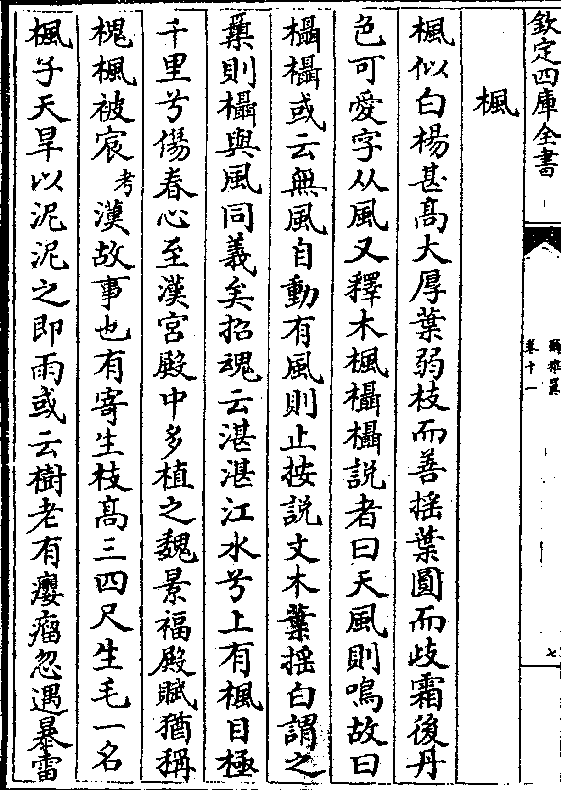 欽定四庫全書
爾雅翼
卷十一
七
楓
楓似白楊甚髙大厚葉弱枝而善揺葉圓而歧霜後丹
色可愛字从風又釋木楓欇欇説者曰天風則鳴故曰
欇欇或云無風自動有風則止按説文木葉揺白謂之
𣛕則欇與風同義矣招魂云湛湛江水兮上有楓目極
千里兮傷春心至漢宫殿中多植之魏景福殿賦猶稱
槐楓被宸考漢故事也有寄生枝髙三四尺生毛一名
楓子天旱以泥泥之即雨或云樹老有癭瘤忽遇暴雷